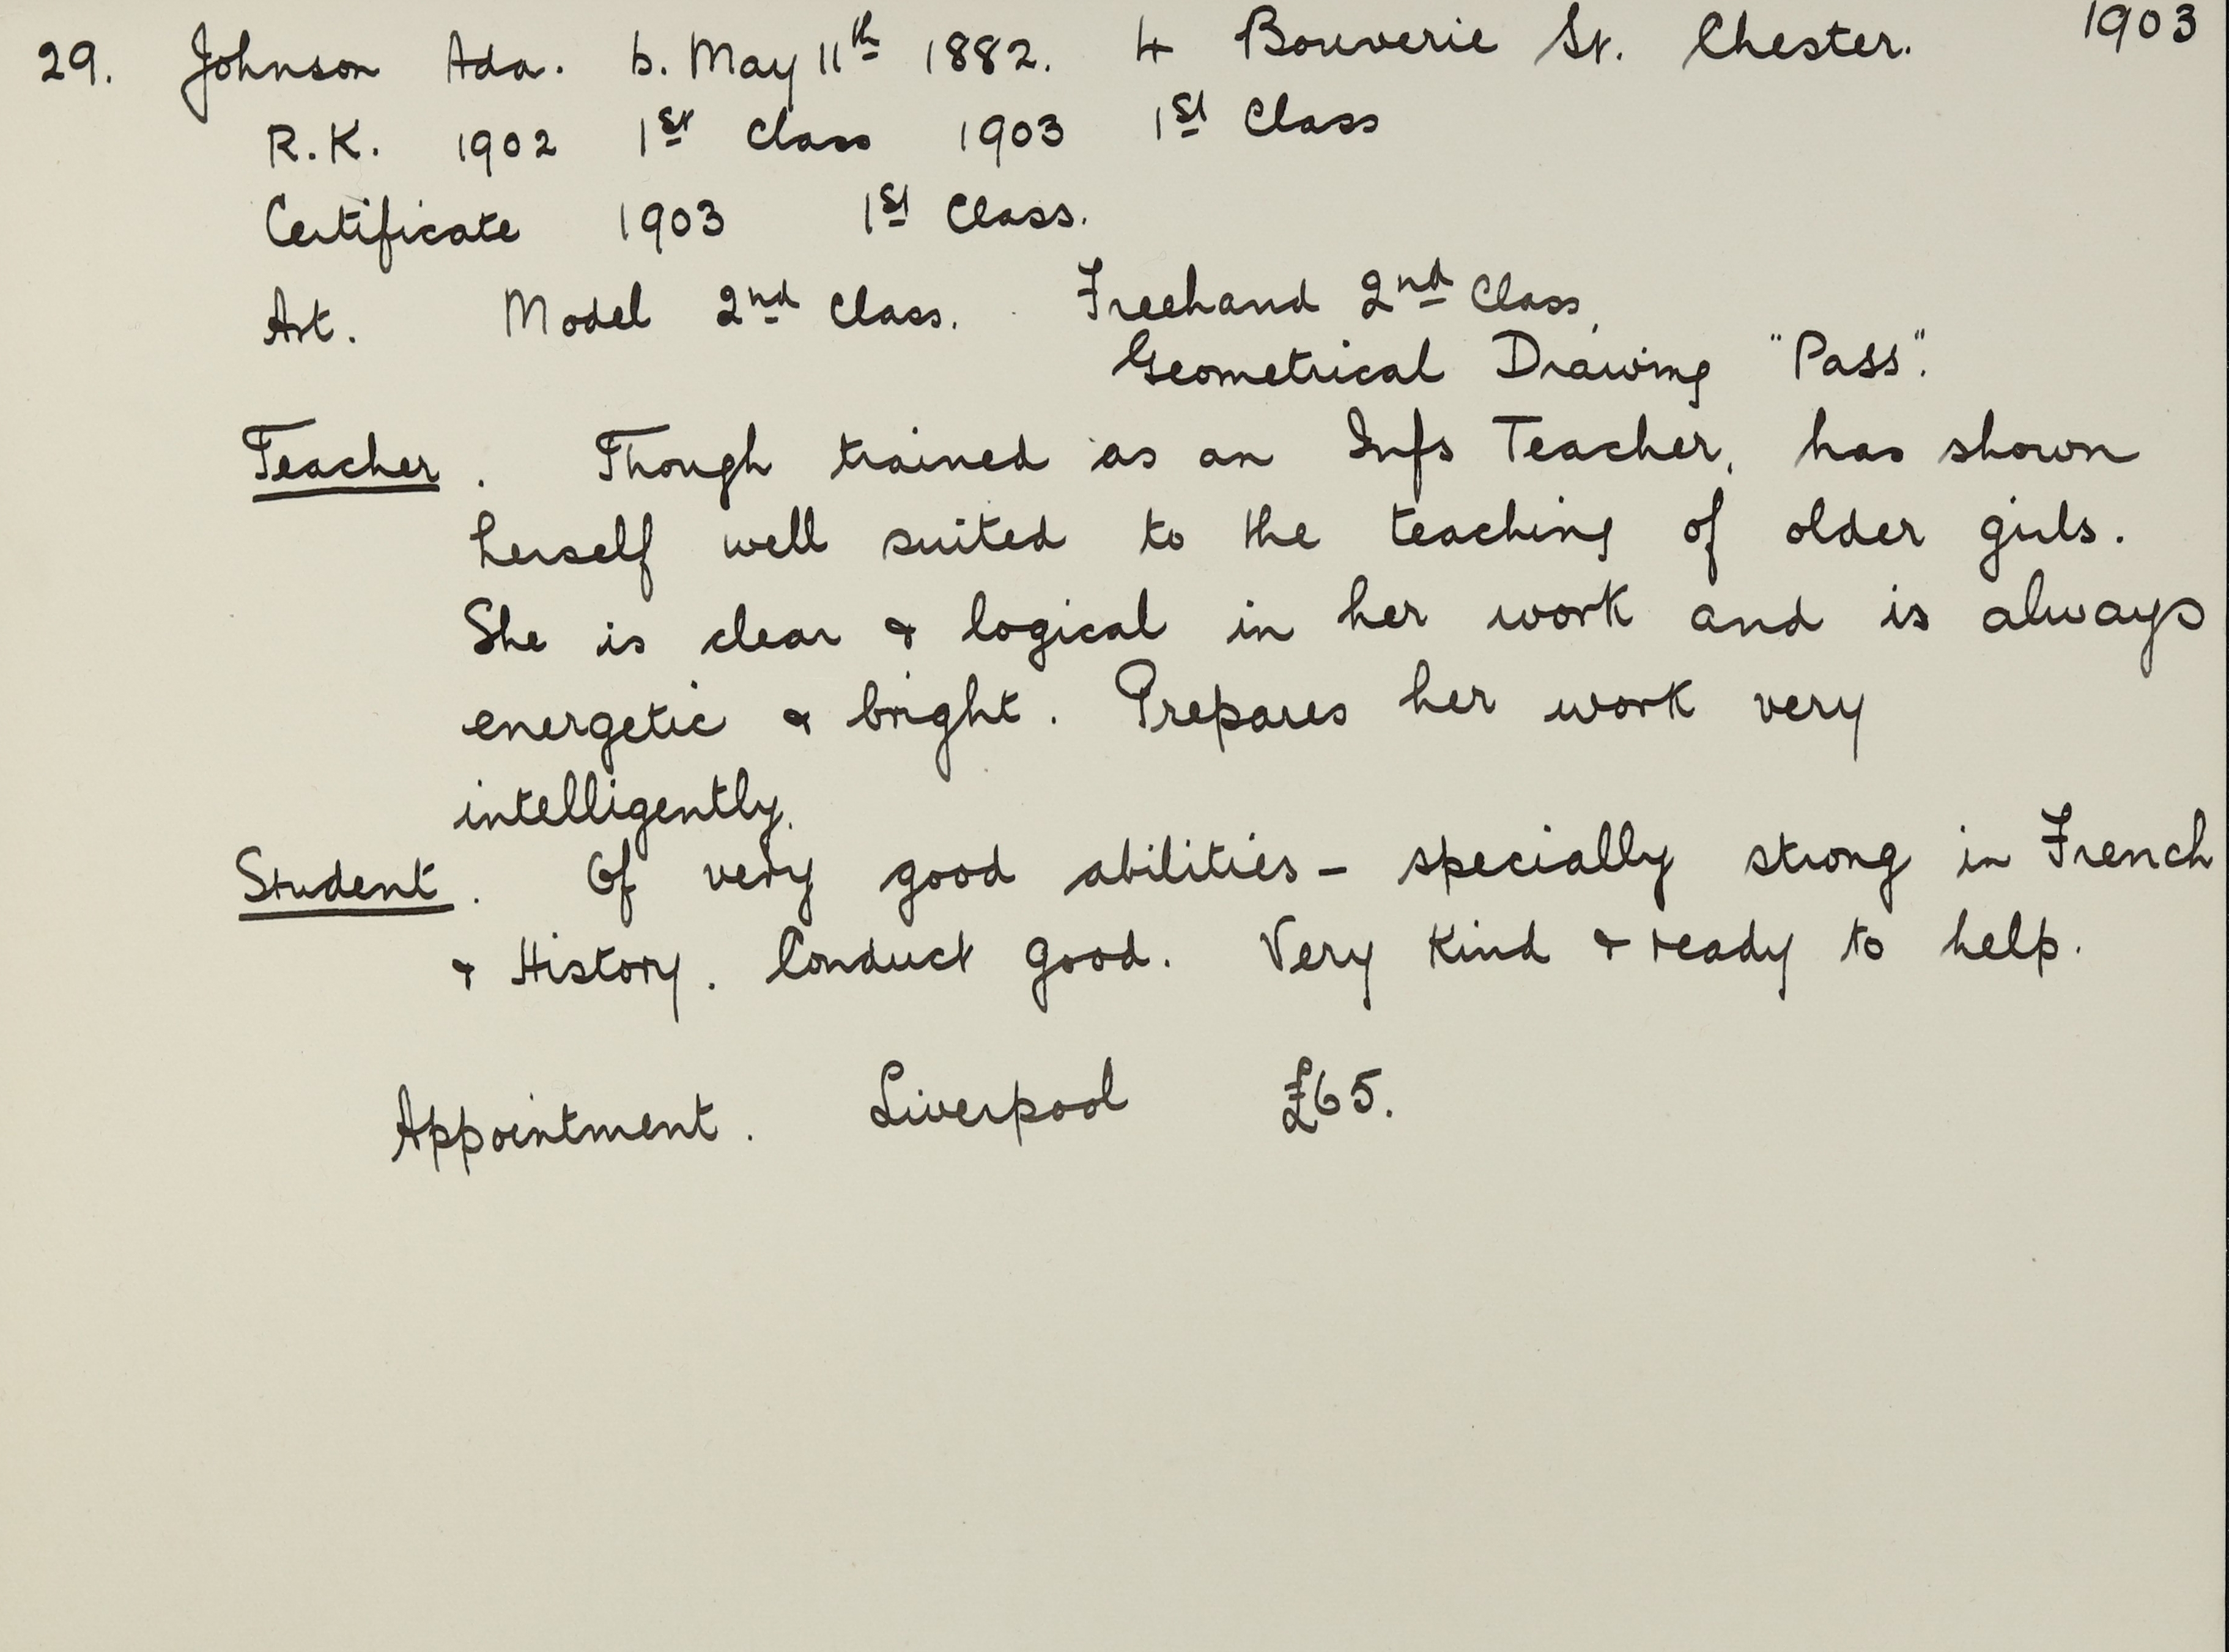 29. Johnson Ada. b. May 11th 1882. 4 Bouverie St. Chester. 1903
R.K. 1902 1st Class 1903 1st Class
Certificate 1903 1st Class.
Art. Model 2nd Class. Freehand 2nd Class,
Geometrical Drawing "Pass".
Teacher. Though trained as an Infs Teacher, has shown
herself well suited to the teaching of older girls.
She is clear & logical in her work and is always
energetic & bright. Prepares her work very
intelligently.
Student. Of very good abilities - specially strong in French
& History. Conduct good. Very kind & ready to help.
Appointment. Liverpool £65.